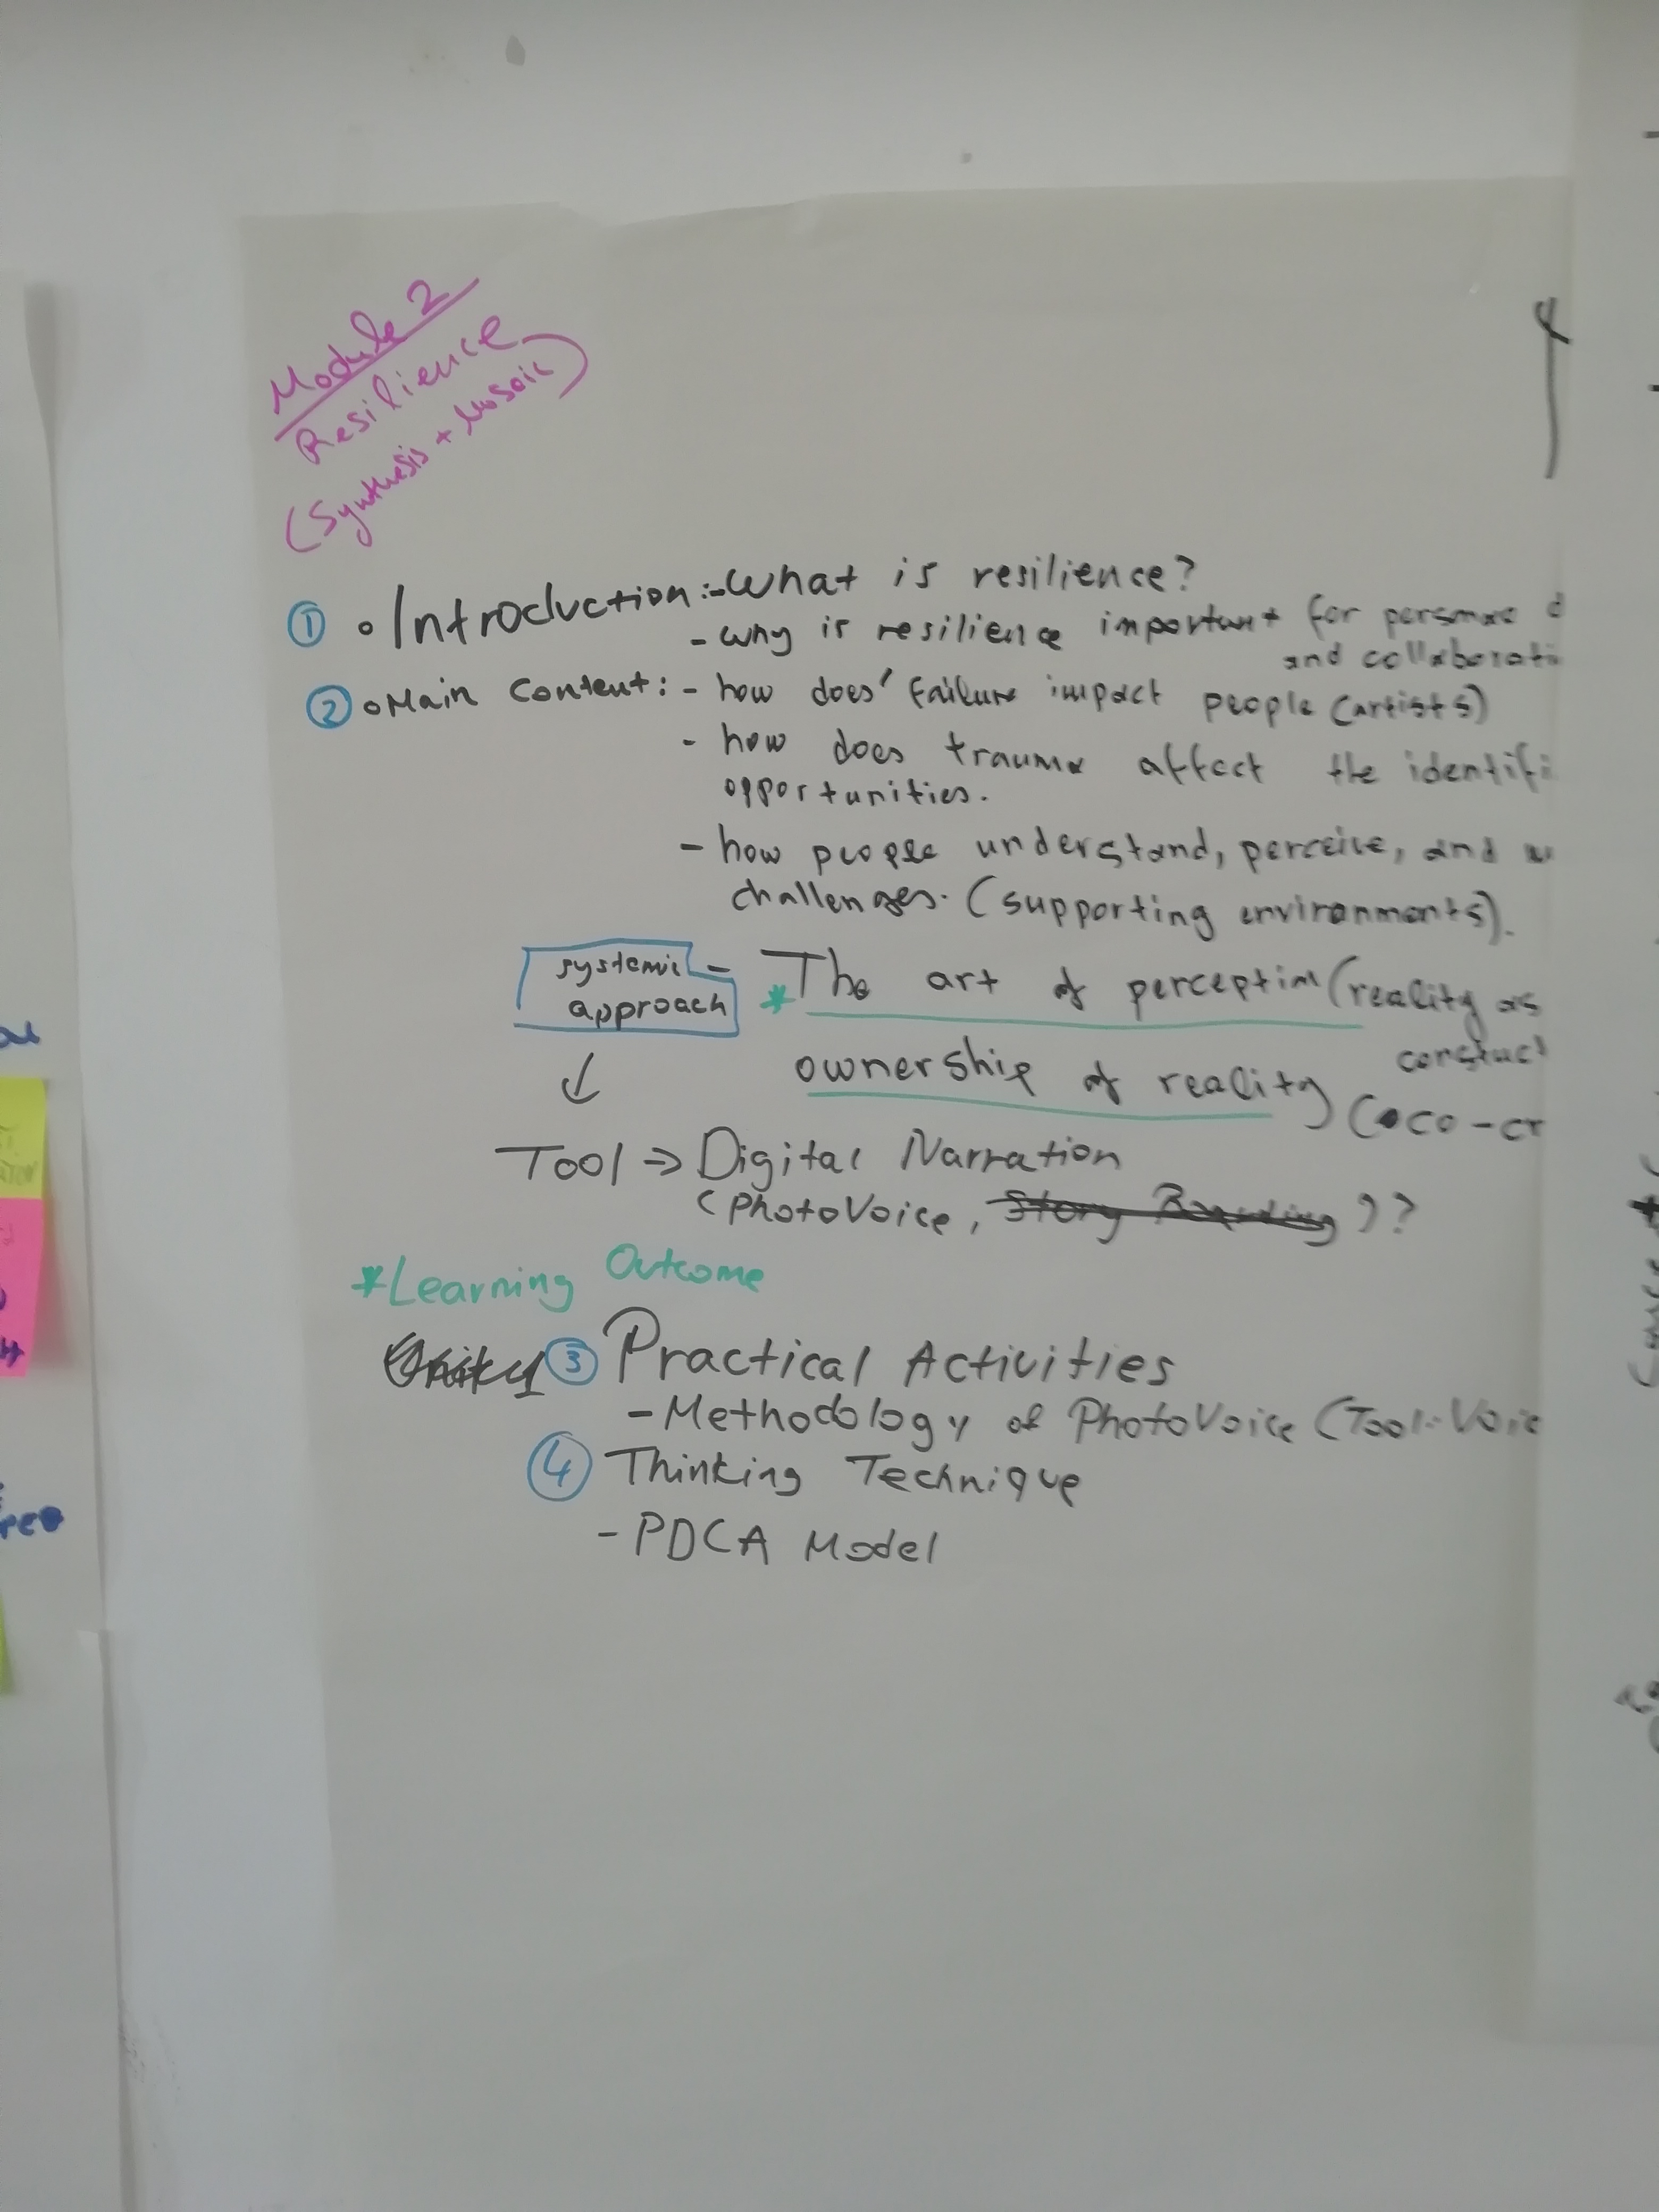 Module 2
Resilience
(Synthesis + Mosaic)
① • Introduction: - What is resilience?
- why is resilience important for
and
② • Main Content: - how does failure impact people (artists)
- how does trauma affect the
opportunities.
- how people understand, perceive, and
challenges. (supporting environments).
systemic
approach
- * The art of perception (reality as
ownership of reality
Tool ⇒ Digital Narration
(PhotoVoice, Story )??
* Learning Outcome
③ Practical Activities
- Methodology of PhotoVoice (Tool:
④ Thinking Technique
- PDCA Model